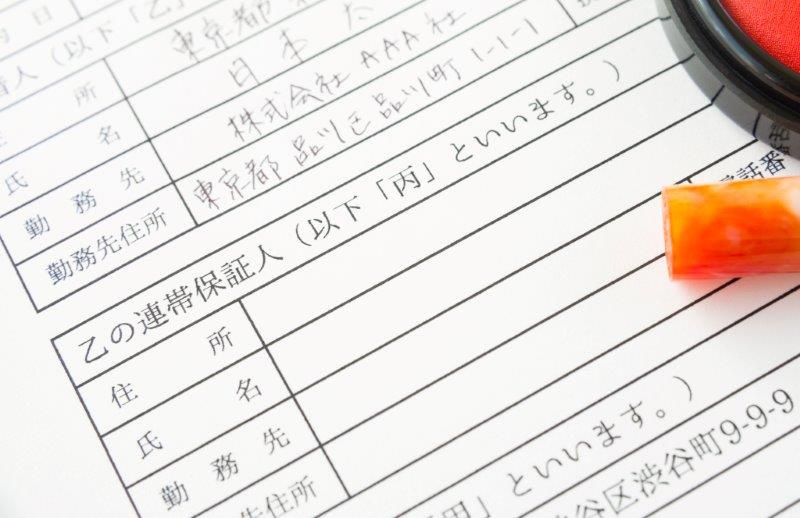 人（以下「乙」
所 東京都
名 日本 太
氏
勤務先 株式会社AAA社
勤務先住所 東京都品川区品川町1-1-1
乙の連帯保証人（以下「丙」といいます。）
住所
氏名
勤務先
先住所
話番
」といいます。）
谷区渋谷町9-9-9